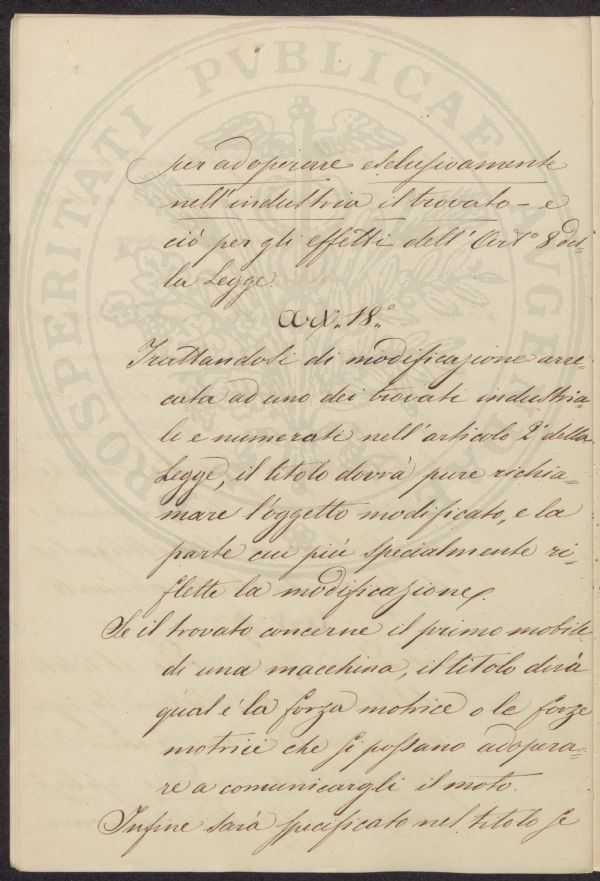 per adoperare esclusivamente
nell'industria il trovato – e
ciò per gli effetti dell'Art.° 8 del-
la Legge
Art. 18.°
Trattandosi di modificazione arre-
cata ad uno dei trovati industria-
li e numerati nell'articolo 2° della
Legge, il titolo dovrà pure richia-
mare l'oggetto modificato, e la
parte cui più specialmente ri-
flette la modificazione.
Se il trovato concerne il primo mobile
di una macchina, il titolo dirà
qual'è la forza motrice o le forze
motrici che si possano adopera-
re a comunicargli il moto.
Infine sarà specificato nel titolo se
PROSPERITATI PVBLICAE AVGENDAE